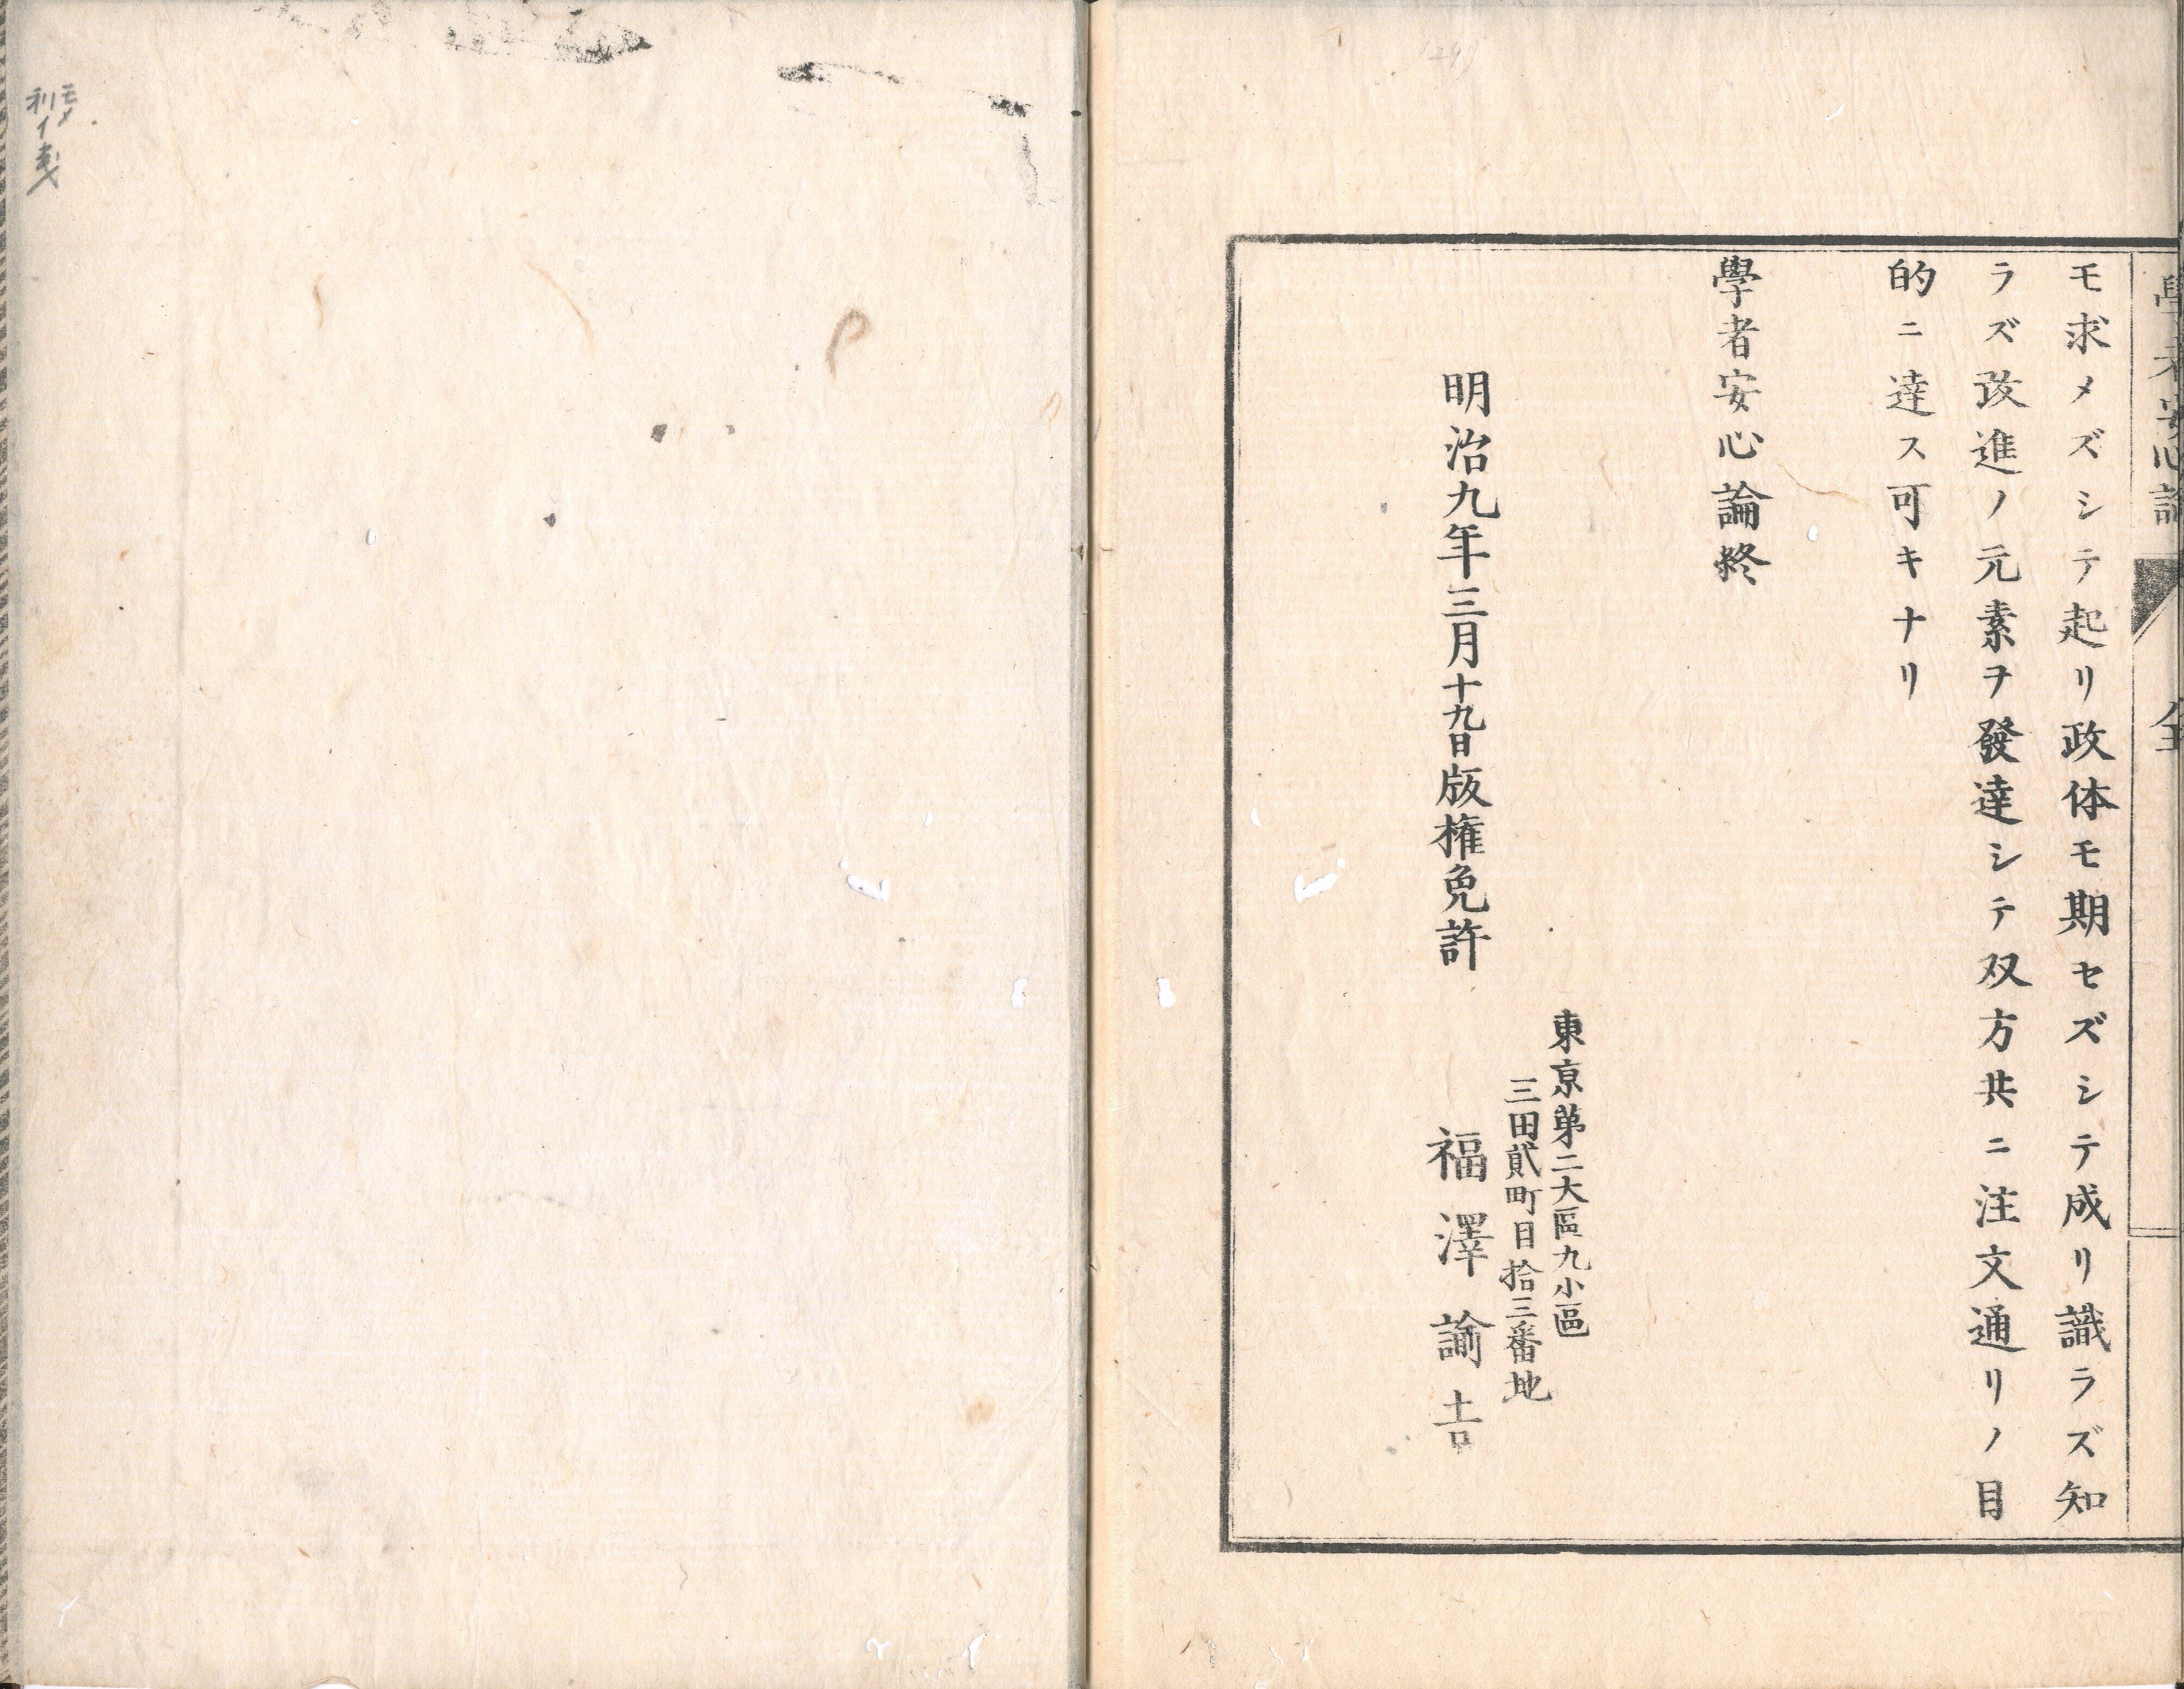 學者安心論 全
モ求メズシテ起リ政体モ期セズシテ成リ識ラズ知
ラズ改進ノ元素ヲ發達シテ双方共ニ注文通リノ目
的ニ達ス可キナリ
學者安心論終
東京第二大區九小區
三田貳町目拾三番地
福澤諭吉
明治九年三月十九日版権免許